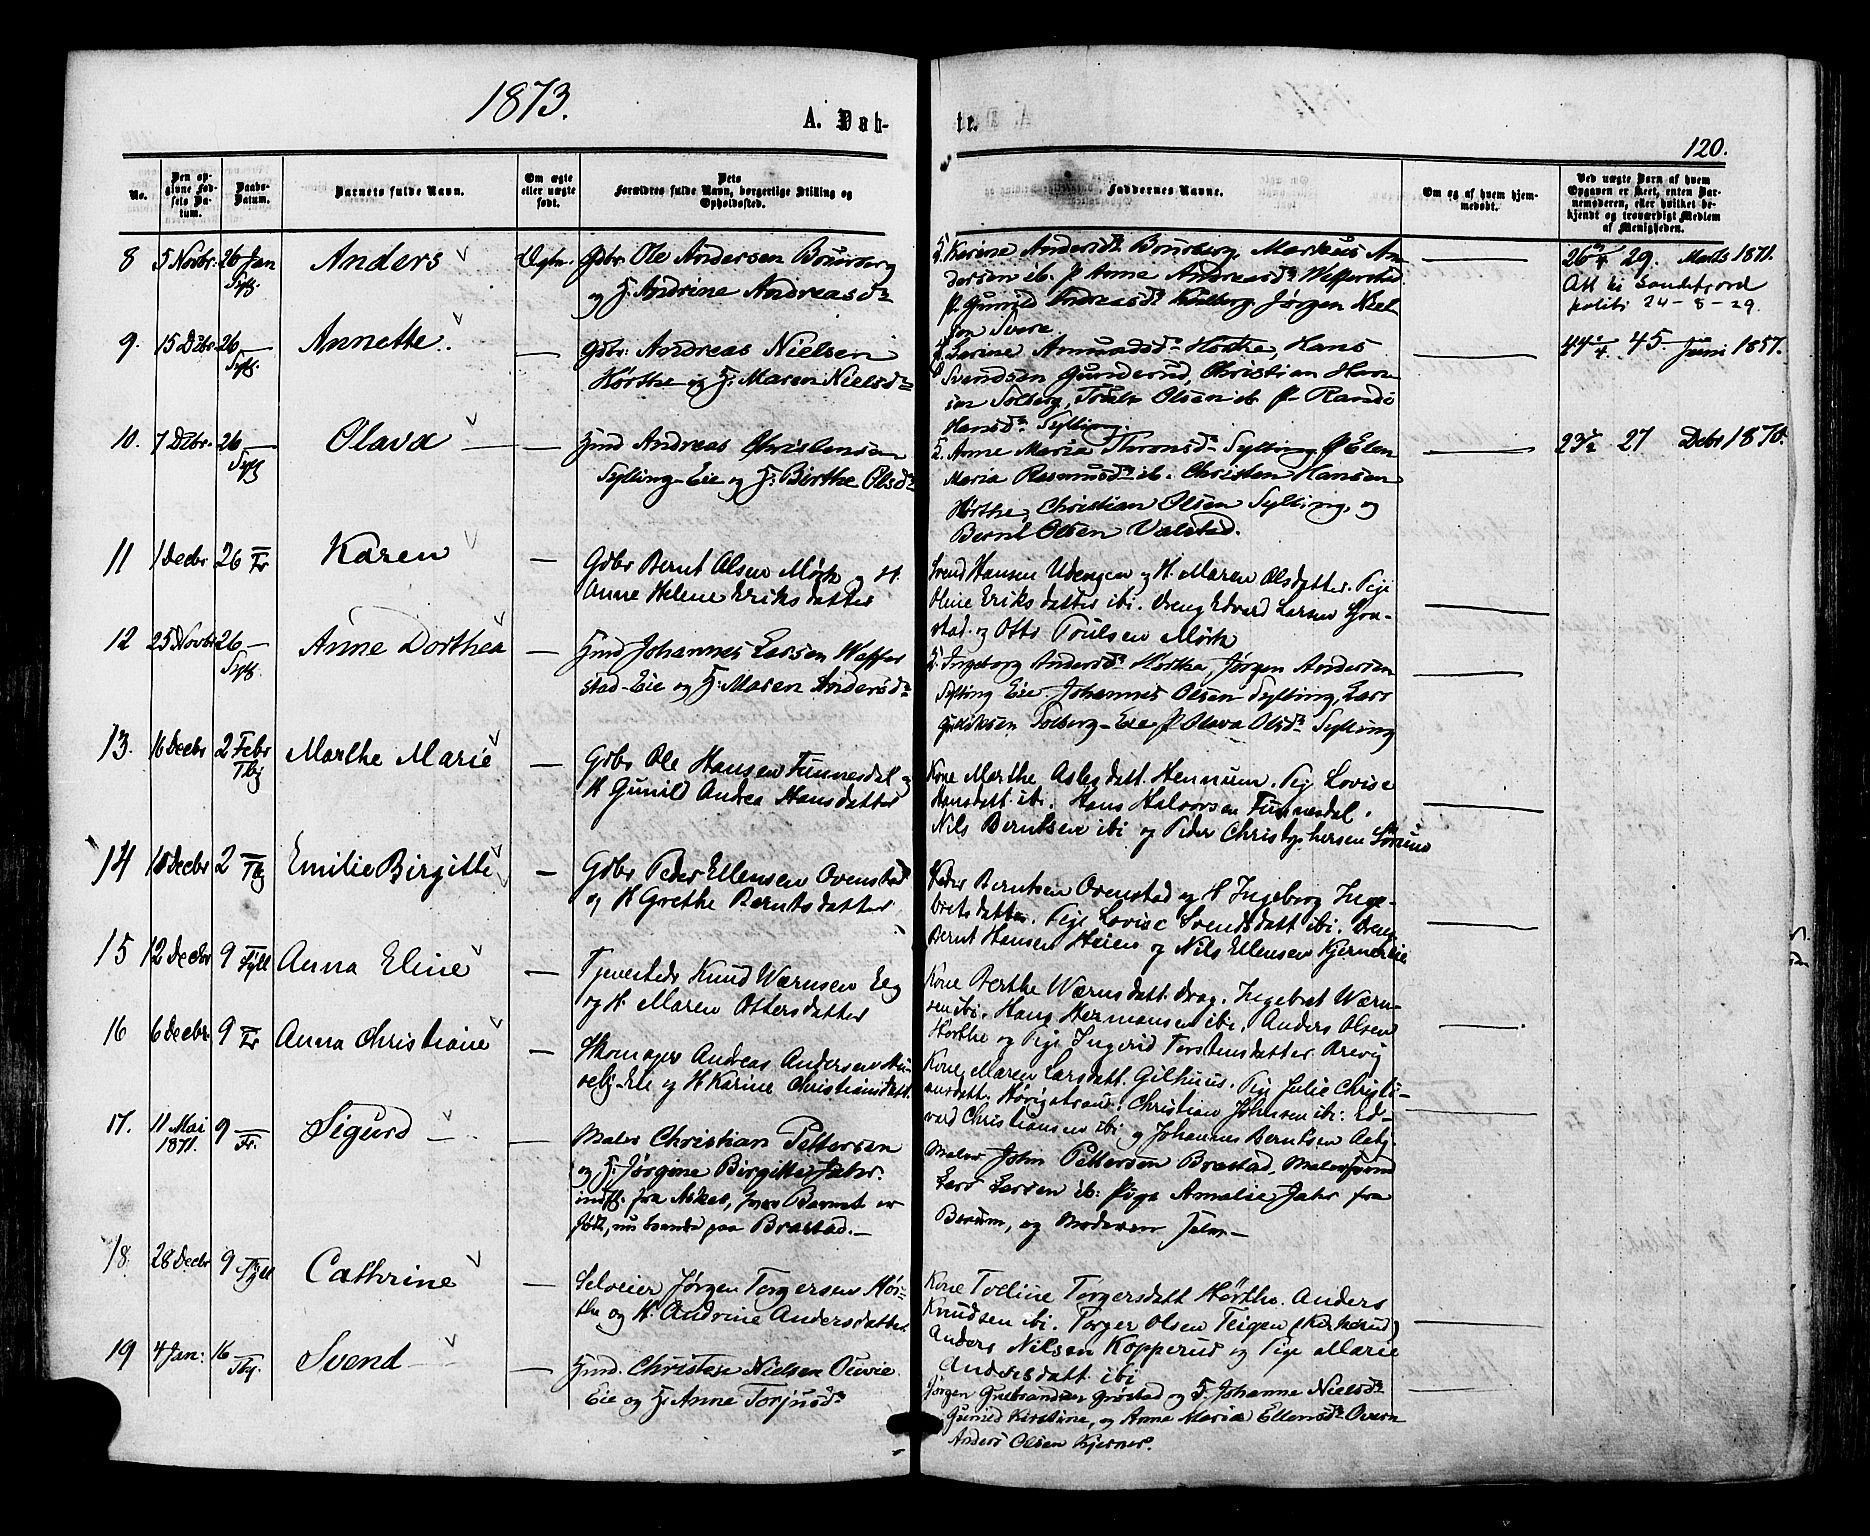 1873.
A. Døb-
te.
120.
No.
Den op-
givne Fød-
sels Da-
tum.
Daabs-
Datum.
Barnets fulde Navn.
Om ægte
eller uægte
født.
Dets
Forældres fulde Navn, borgerlige Stilling og
Opholdssted.
Faddernes Navne.
Om og af hvem hjem-
medøbt.
Ved uægte Børn af hvem
Opgaven er skeet, enten Bar-
nemoderen, eller hvilket be-
kjendt og troværdigt Medlem
af Menigheden.
8 5 Novbr. 26 Jan Sylt. Anders Ægte. Gdbr. Ole Andersen
og H. Andrine Andreasdr
Karine Andersdr. Markus An-
dersen ib. P. Anne Andreasdr
P. Gunild Andreasdr Jørgen Niel-
sen
26 29. Marts 1871.
Att. til Sandefjord
politi 24-5-29.
9. 15 Dcbr. 26 Sylt. Annette. — Gdbr. Andreas Nielsen
Hørthe og H. Maren Nielsdr
Amundsdr Hørthe, Hans
Svendsen Gunderud, Christian Han-
sen Solberg, Olsen ib. P. Randi
Hansdr Sylling.
44 45. Juni 1857.
10. 7 Dcbr. 26 Sylt Olava — Hmd Andreas Christensen
Sylling-Eie og H. Birthe Olsdr
Anne Maria Thronsdr Sylling, Elen
Maria Rasmusdr ib. Christen Hansen
Hørthe, Christian Olsen Sylling, og
Bernt Olsen Valstad.
23 27 Debr 1870.
11 1 Decbr 26 Fr Karen — Gdbr Bernt Olsen Mørk og H.
Anne Helene Eriksdatter
Svend Hansen Udengen og H. Maren Olsdatter. Pige
Oline Eriksdatter ibi. Dreng Edvard Larsen
og Otto Poulsen Mørk
12 25 Novbr 26 Sylt. Anne Dorthea — Hmd Johannes Larsen Weffer
stad-Eie og H. Maren Andersdr
Ingeborg Andersdr Hørthe Jørgen Andersen
Sylling Eie Johannes Olsen Sylling, Lars
Solberg-Eie, P. Olava Olsdr Sylling
13. 16 Decbr 2 Febr Tbj Marthe Marie — Gdbr Ole Hansen Tunnesdal og
H Gunild Andrea Hansdatter
Kone Marthe Aslagdatt. Hennum. Pige Lovise
Hansdatt. ibi. Hans Halvorsen Tunnesdal.
Nils Berntsen ibi og Peder Christophersen
14 10 Decbr 2 Tbj Emilie Birgitte — Gdbr Peder Ellensen Ovenstad
og H Grethe Berntsdatter
Peder Berntsen Ovenstad og H Ingeborg Inge-
bretsdatter. Pige Lovise Svendsdatt ibi. Dreng
Bernt Hansen Heien og Nils Ellensen Kjerneieie
15 12 Decbr 9 Syll Anna Eline — Tjenestedr Knud Wærnsen Eeg
og H. Maren Ottersdatter
Kone Berthe Wærnsdatt. Ingebret Wærn-
sen ibi. Hans Hermansen ibi. Anders Olsen
Hørthe og Pige Ingerid Torstensdatter
16 6 Decbr 9 Fr Anna Christiane — Skomager Andreas Andersen
Eie og H Karine Christiansdatt.
Kone Maren Larsdatt. Gilhuus. Pige Julie Christi-
ansdatt. Christian Johnsen ibi. Ed-
vard Christiansen ibi og Johannes Berntsen
17. 11 Mai 1871. 9 Fr. Sigurd — Maler Christian Pettersen
og H. Jørgine Birgitte Jahr.
indfl. fra Asker, hvor Barnet er
født, nu boende paa Bråstad.—
Maler John Pettersen Bråstad, Malersvend
Lars Larsen ib: Pige Amalie Jahr fra
Bærum, og Moderen selv—
18. 28 Decbr 9 Syll Cathrine — Selveier Jørgen Torgersen Hør-
the og H. Andrine Andersdatter
Kone Torgersdatt Hørthe. Anders
Knudsen ibi. Torger Olsen Teigen (Kirkerud)
Anders Nilsen Kopperud og Pige Marie
Andersdatt. ibi
19 4 Jan: 16 Tbj. Svend — Hmd. Christen Nielsen
Eie og H. Anne Torjusdr
Jørgen Gulbrandsen Grøstad og H. Johanne Nielsdr
Gunild Kirstine, og Anne Maria Ellensdr Overn
Anders Olsen Kjerner.